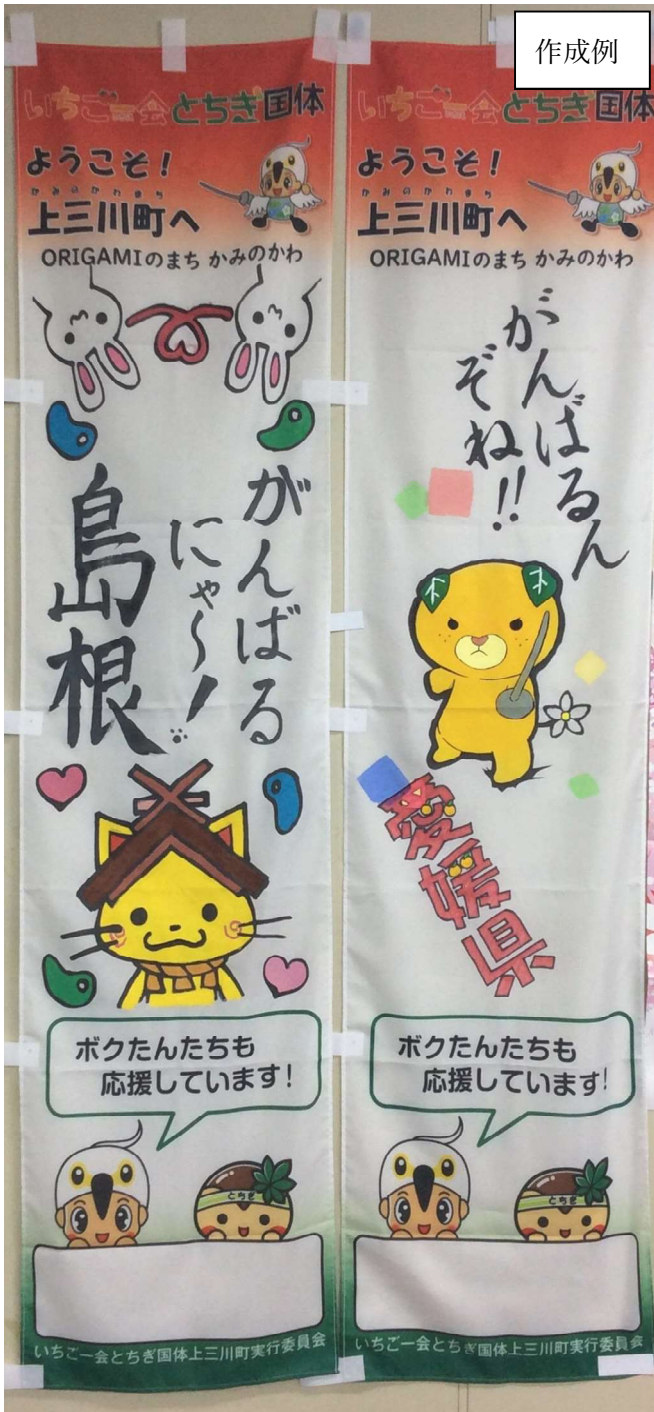 作成例
いちご一会とちぎ国体
ようこそ!
かみのかわまち
上三川町へ
ORIGAMIのまち かみのかわ
がんばる
にゃ〜!
島根
ボクたんたちも
応援しています!
とちぎ
いちご一会とちぎ国体上三川町実行委員会
いちご一会とちぎ国体
ようこそ!
かみのかわまち
上三川町へ
ORIGAMIのまち かみのかわ
がんばるん
ぞね!!
愛媛県
ボクたんたちも
応援しています!
とちぎ
いちご一会とちぎ国体上三川町実行委員会